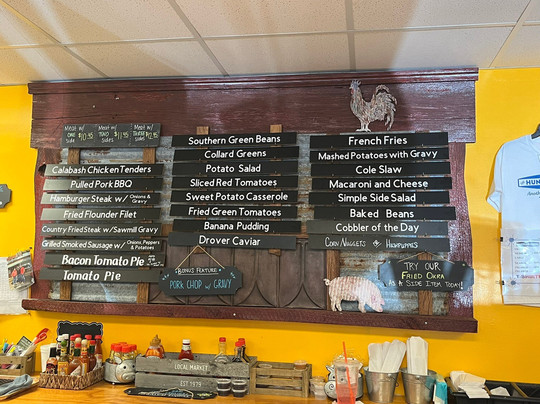 Meat w/ ONE SIDE $10.45
Meat w/ TWO SIDES $11.45
Meat w/ THREE SIDES $12.45
Calabash Chicken Tenders
Pulled Pork BBQ
Hamburger Steak w/ Onions & Gravy
Fried Flounder Filet
Country Fried Steak w/Sawmill Gravy
Grilled Smoked Sausage w/ Onions, Peppers & Potatoes
Bacon Tomato Pie
Tomato Pie
Southern Green Beans
Collard Greens
Potato Salad
Sliced Red Tomatoes
Sweet Potato Casserole
Fried Green Tomatoes
Banana Pudding
Drover Caviar
Bonus Feature
Pork Chop w/ Gravy
French Fries
Mashed Potatoes with Gravy
Cole Slaw
Macaroni and Cheese
Simple Side Salad
Baked Beans
Cobbler of the Day
Corn Nuggets & Hushpuppies
Try Our
Fried Okra
As a Side Item Today!
LOCAL MARKET
EST. 1979